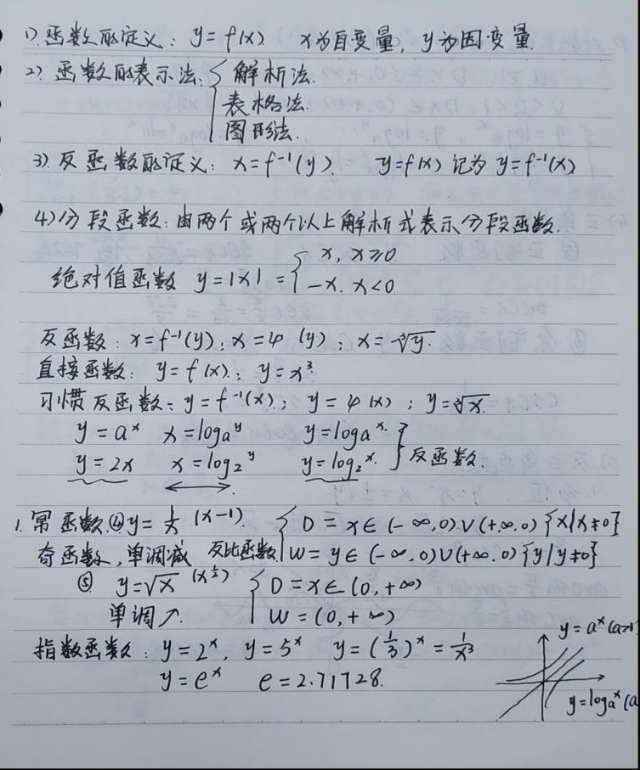 1) 函数的定义: y=f(x) x为自变量, y为因变量.
2) 函数的表示法. { 解析法.
表格法.
图形法.
3) 反函数的定义: x=f⁻¹(y). y=f(x) 记为 y=f⁻¹(x)
4) 分段函数: 由两个或两个以上解析式表示分段函数.
绝对值函数 y=|x|= { x, x≥0.
-x. x<0
反函数: x=f⁻¹(y); x=φ(y); x=∛y.
直接函数: y=f(x); y=x³.
习惯反函数: y=f⁻¹(x); y=φ(x); y=∛x.
y=aˣ x=logₐʸ y=logₐˣ. } 反函数.
y=2x x=log₂ʸ y=log₂ˣ.
1. 幂函数. ④ y=1/x (x-1). { D=x∈(-∞,0)∪(+∞.0) {x|x≠0}
奇函数, 单调减 反比函数 W=y∈(-∞,0)∪(+∞.0) {y|y≠0}
⑤ y=√x (x½) { D=x∈(0,+∞)
单调↗. W=(0,+∞)
指数函数: y=2ˣ, y=5ˣ y=(1/3)ˣ=1/x³
y=eˣ e=2.71728.
y=aˣ(a>1
y=logₐˣ(a